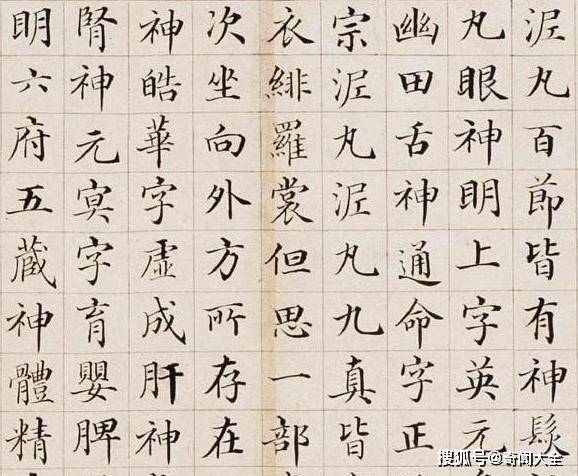 泥丸百節皆有神髮
丸眼神明上字英元
幽田舌神通命字正
宗泥丸泥丸九真皆
衣緋羅裳但思一部
次坐向外方所存在
神皓華字虛成肝神
腎神元冥字育嬰脾
明六府五藏神體精
搜狐号@奇闻大全